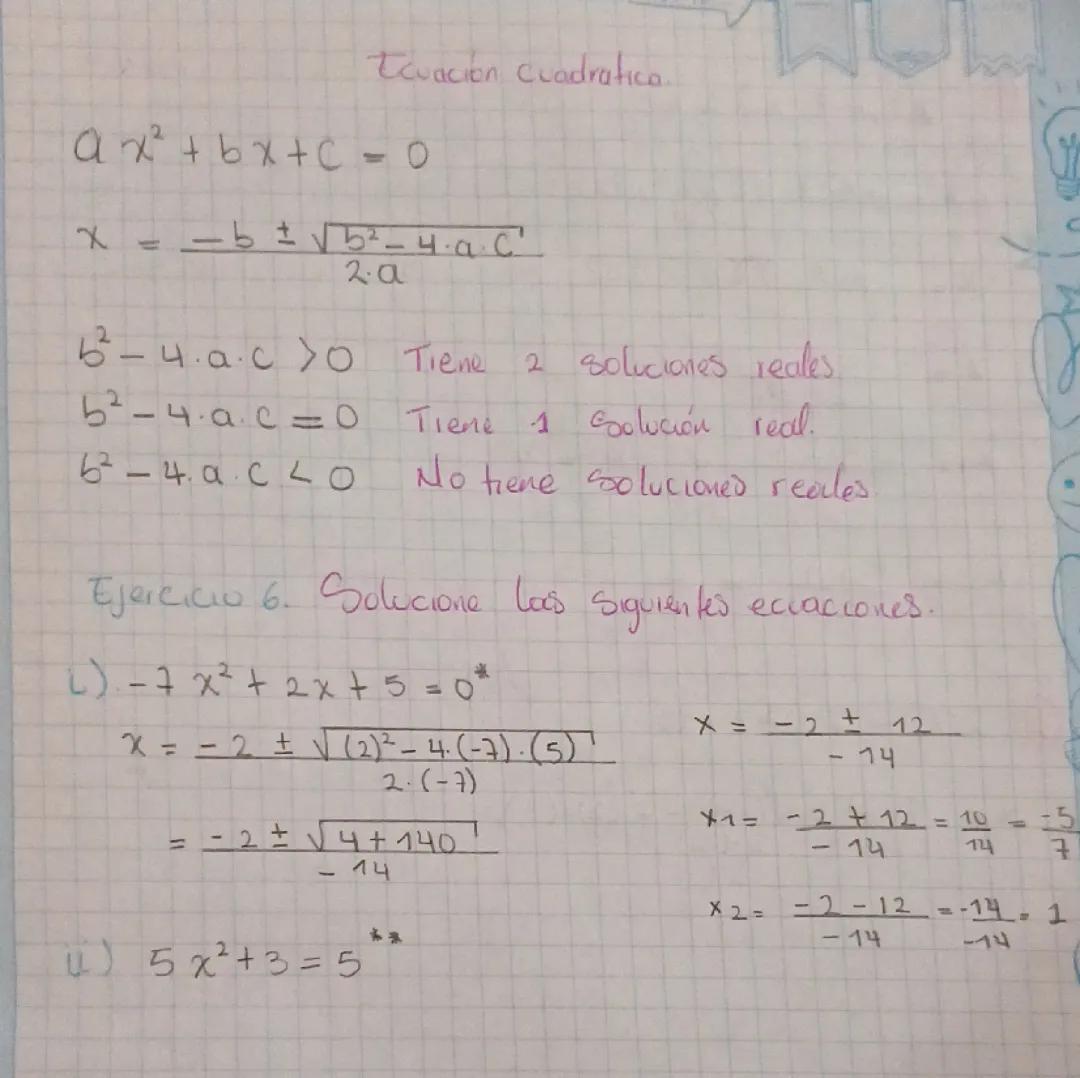 Ecuación cuadratica.
ax² + bx + c = 0
x = (-b ± √(b² - 4·a·c)) / (2·a)
b² - 4·a·c > 0 Tiene 2 soluciones reales
b² - 4·a·c = 0 Tiene 1 solución real.
b² - 4.a.c < 0 No tiene soluciones reales
Ejercicio 6. Solucione las siguientes ecuaciones.
i) -7x² + 2x + 5 = 0*
x = (-2 ± √((2)² - 4·(-7)·(5))) / (2·(-7))
= (-2 ± √(4 + 140)) / -14
x = (-2 ± 12) / -14
x1 = (-2 + 12) / -14 = 10/14 = -5/7
x2 = (-2 - 12) / -14 = -14/-14 = 1
ii) 5x² + 3 = 5**